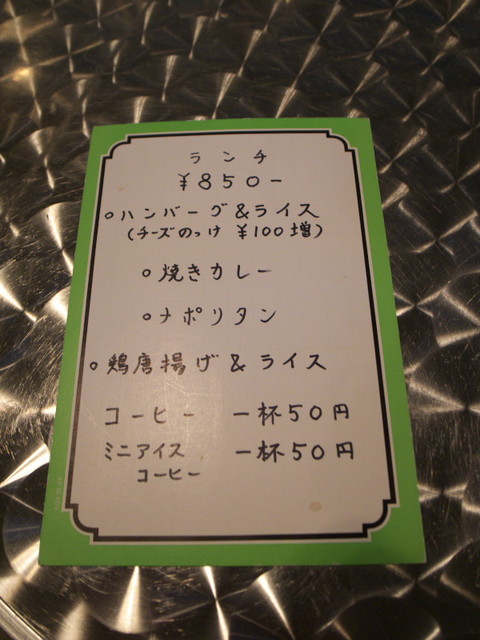 ランチ
¥850-
○ハンバーグ&ライス
(チーズのっけ ¥100増)
○焼きカレー
○ナポリタン
○鶏唐揚げ&ライス
コーヒー 一杯50円
ミニアイス 一杯50円
コーヒー